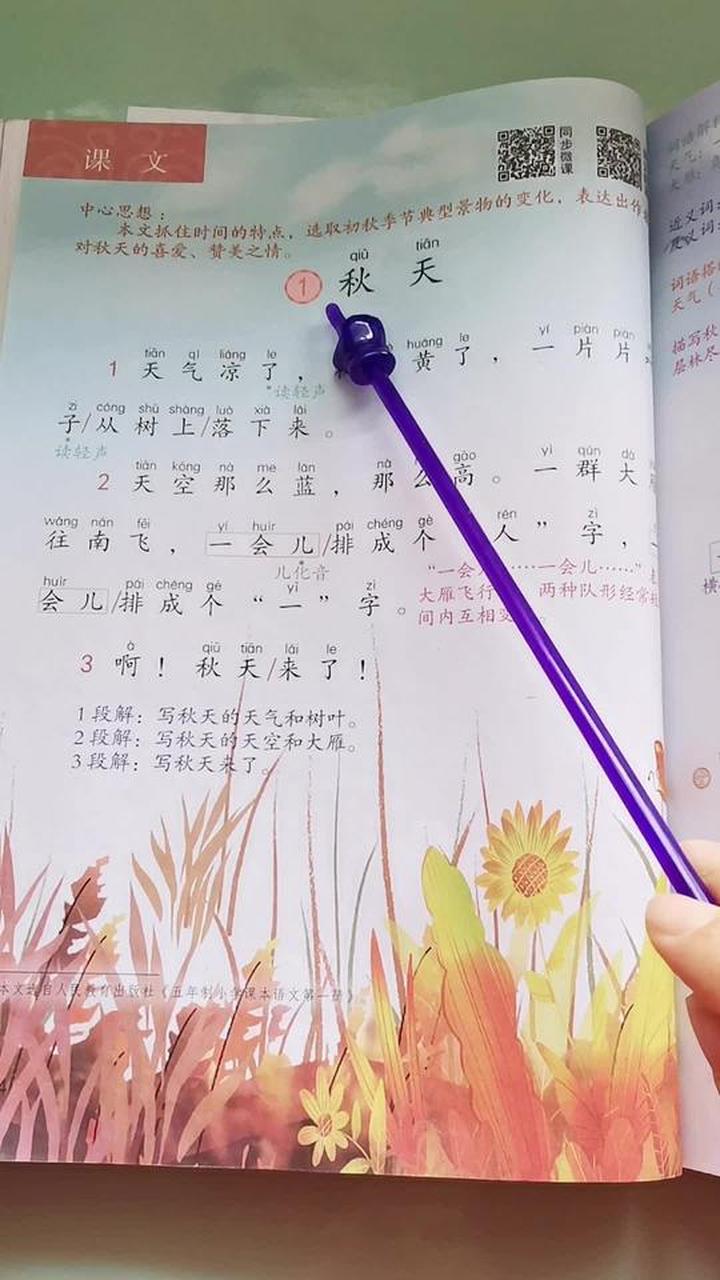 课 文
同步微课
中心思想：
本文抓住时间的特点，选取初秋季节典型景物的变化，表达出作
对秋天的喜爱、赞美之情。
qiū tiān
1 秋 天
tiān qì liáng le huáng le yí piàn piàn
1 天 气 凉 了， 黄 了， 一 片 片
读轻声
zi cóng shù shàng luò xià lái
子/从 树 上/落 下 来。
读轻声
tiān kōng nà me lán nà gāo yì qún dà
2 天 空 那 么 蓝， 那 么 高。 一 群 大
wǎng nán fēi yí huìr pái chéng gè rén zì
往 南 飞， 一 会 儿/排 成 个 人” 字，
儿化音
“一会 ……一会儿……”
大雁飞行 两种队形经常
间内互相变
huìr pái chéng gè yī zì
会 儿/排 成 个 “一” 字。
à qiū tiān lái le
3 啊！ 秋 天/来 了！
1段解：写秋天的天气和树叶。
2段解：写秋天的天空和大雁。
3段解：写秋天来了。
本文选自人民教育出版社《五年制小学课本语文第一册》
词语解
天气：
近义词：
反义词：
词语搭
天气（
描写秋
层林尽
横